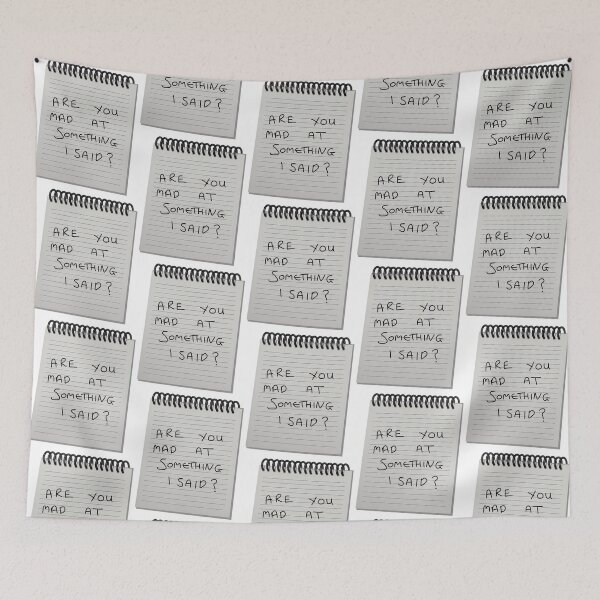 ARE YOU
MAD AT
SOMETHING
I SAID?
ARE YOU
MAD AT
SOMETHING
I SAID?
ARE YOU
MAD AT
SOMETHING
I SAID?
ARE YOU
MAD AT
SOMETHING
I SAID?
ARE YOU
MAD AT
SOMETHING
I SAID?
ARE YOU
MAD AT
SOMETHING
I SAID?
ARE YOU
MAD AT
SOMETHING
I SAID?
ARE YOU
MAD AT
SOMETHING
I SAID?
ARE YOU
MAD AT
SOMETHING
I SAID?
ARE YOU
MAD AT
SOMETHING
I SAID?
ARE YOU
MAD AT
SOMETHING
I SAID?
ARE YOU
MAD AT
SOMETHING
I SAID?
ARE YOU
MAD AT
SOMETHING
I SAID?
ARE YOU
MAD AT
SOMETHING
I SAID?
ARE YOU
MAD AT
SOMETHING
I SAID?
ARE YOU
MAD AT
SOMETHING
I SAID?
ARE YOU
MAD AT
SOMETHING
I SAID?
ARE YOU
MAD AT